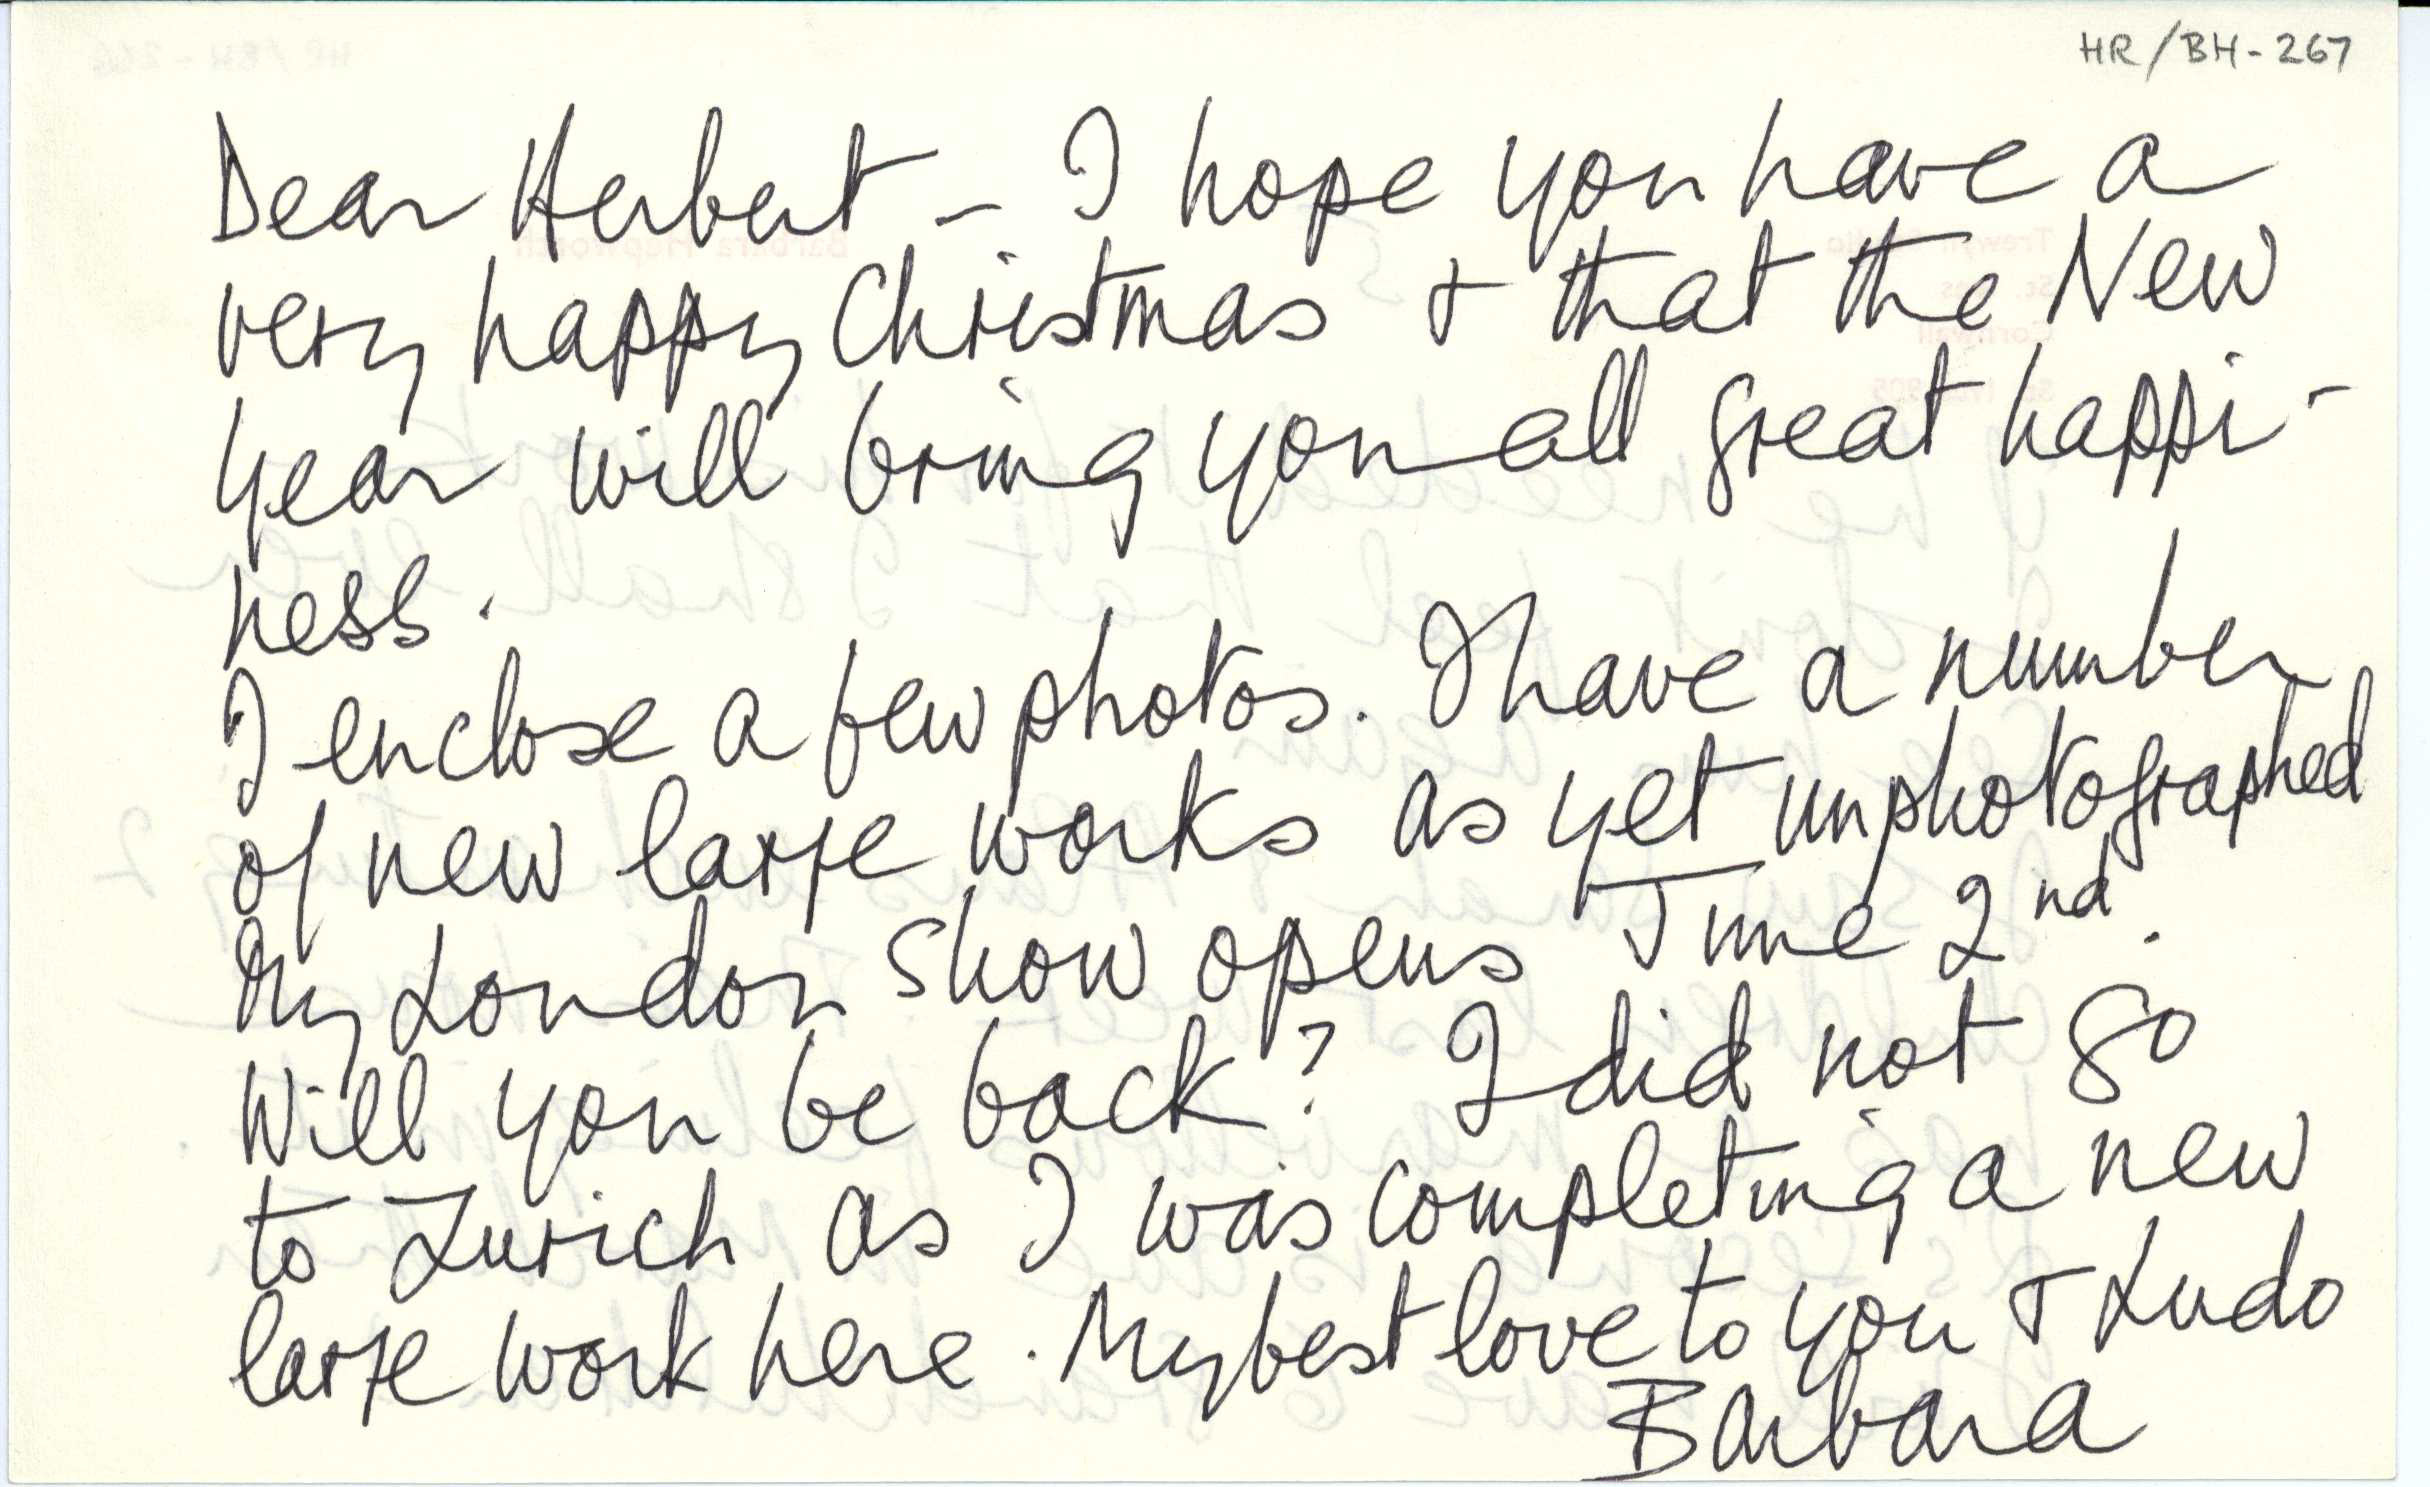 HR/BH-267
Dear Herbert - I hope you have a
very happy Christmas + that the New
Year will bring you all great happi-
ness.
I enclose a few photos. I have a number
of new large works as yet unphotographed
My London show opens June 2nd.
Will you be back? I did not go
to Zurich as I was completing a new
large work here. My best love to you + Ludo
Barbara